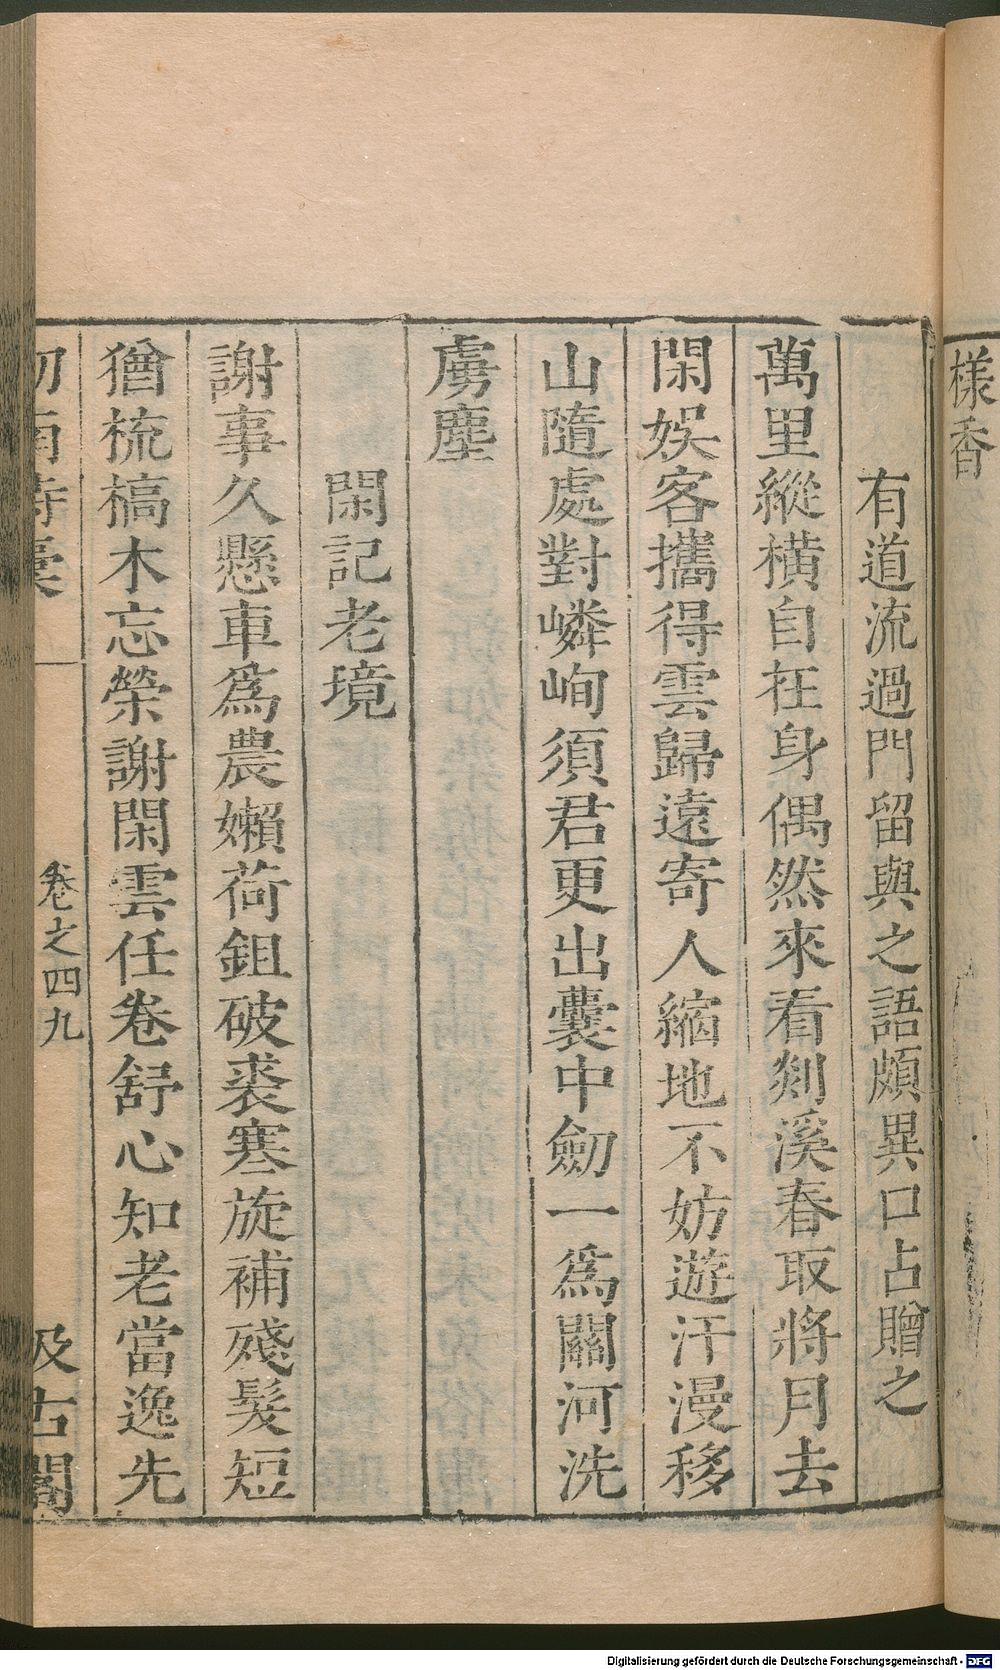 樣香
有道流過門留與之語頗異口占贈之
萬里縱橫自在身偶然來看剡溪春取將月去
閑娛客攜得雲歸遠寄人縮地不妨遊汗漫移
山隨處對嶙峋須君更出囊中劒一爲關河洗
虜塵
閑記老境
謝事久懸車爲農嬾荷鉏破裘寒旋補殘髮短
猶梳槁木忘榮謝閑雲任卷舒心知老當逸先
劒南詩稾
卷之四九
汲古閣
Digitalisierung gefördert durch die Deutsche Forschungsgemeinschaft - DFG